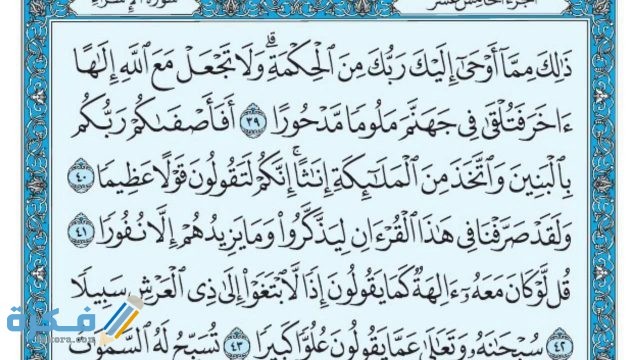 سورة الإسراء
الجزء الخامس عشر
ذَٰلِكَ مِمَّآ أَوْحَىٰٓ إِلَيْكَ رَبُّكَ مِنَ ٱلْحِكْمَةِ ۗ وَلَا تَجْعَلْ مَعَ ٱللَّهِ إِلَٰهًا
ءَاخَرَ فَتُلْقَىٰ فِى جَهَنَّمَ مَلُومًا مَّدْحُورًا ٣٩ أَفَأَصْفَىٰكُمْ رَبُّكُم
بِٱلْبَنِينَ وَٱتَّخَذَ مِنَ ٱلْمَلَٰٓئِكَةِ إِنَٰثًا ۚ إِنَّكُمْ لَتَقُولُونَ قَوْلًا عَظِيمًا ٤٠
وَلَقَدْ صَرَّفْنَا فِى هَٰذَا ٱلْقُرْءَانِ لِيَذَّكَّرُوا۟ وَمَا يَزِيدُهُمْ إِلَّا نُفُورًا ٤١
قُل لَّوْ كَانَ مَعَهُۥٓ ءَالِهَةٌ كَمَا يَقُولُونَ إِذًا لَّٱبْتَغَوْا۟ إِلَىٰ ذِى ٱلْعَرْشِ سَبِيلًا
٤٢ سُبْحَٰنَهُۥ وَتَعَٰلَىٰ عَمَّا يَقُولُونَ عُلُوًّا كَبِيرًا ٤٣ تُسَبِّحُ لَهُ ٱلسَّمَٰوَٰتُ
فكرة